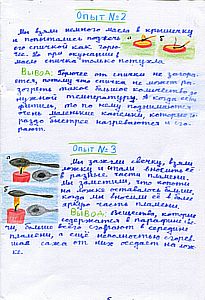 ОПЫТ №2
Мы взяли немного масла в крышечку
и попытались поджечь
его спичкой как горю-
чее. Но при окунании в
масло спичка только потухла.
ВЫВОД: Горючее от спички не загора-
ется, потому что спичка не может ра-
зогреть такое большое количество до
нужной температуру. А когда есть
фитиль, то по нему поднимаются
очень маленькие капельки, которые го-
раздо быстрее нагреваются и сго-
рают.
ОПЫТ № 3
Мы зажгли свечку, взяли
ложку и стали вносить её
в разные части пламени.
Мы заметили, что копоти
на ложке оставалось больше,
когда мы вносили её в более
яркую часть пламени.
ВЫВОД: Вещества, которые
содержатся в парафине све-
чи, больше всего сгорают в середине
пламени, а ещё не полностью сгорев-
шая сажа от них оседает на лож-
ке.